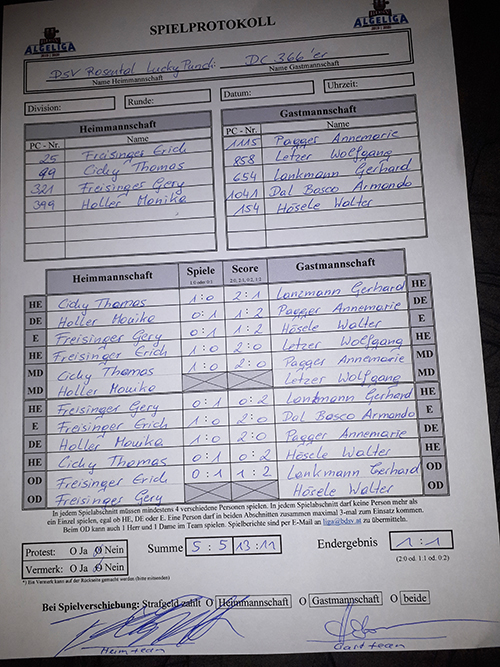 ALGELIGA
SPIELPROTOKOLL
ALGELIGA
DSV Rosental Lucky Pundi DC 366'er
Name Heimmannschaft Name Gastmannschaft
Division: Runde: Datum: Uhrzeit:
Heimmannschaft Gastmannschaft
PC - Nr. Name PC - Nr. Name
25 Freisinger Erich 1115 Pagger Annemarie
99 Cichy Thomas 858 Letzer Wolfgang
321 Freisinger Gery 654 Lankmann Gerhard
399 Holler Monika 1041 Dal Bosco Armando
154 Hösele Walter
Heimmannschaft Spiele Score Gastmannschaft
1:0 oder 0:1 2:0, 2:1, 0:2, 1:2
HE Cichy Thomas 1:0 2:1 Lankmann Gerhard HE
DE Holler Monika 0:1 1:2 Pagger Annemarie DE
E Freisinger Gery 0:1 1:2 Hösele Walter E
HE Freisinger Erich 1:0 2:0 Letzer Wolfgang HE
MD Cichy Thomas 1:0 2:0 Pagger Annemarie MD
MD Holler Monika Letzer Wolfgang MD
HE Freisinger Gery 0:1 0:2 Lankmann Gerhard HE
E Freisinger Erich 1:0 2:0 Dal Bosco Armando E
DE Holler Monika 1:0 2:0 Pagger Annemarie DE
HE Cichy Thomas 0:1 0:2 Hösele Walter HE
OD Freisinger Erich 0:1 1:2 Lankmann Gerhard OD
OD Freisinger Gery Hösele Walter OD
In jedem Spielabschnitt müssen mindestens 4 verschiedene Personen spielen. In jedem Spielabschnitt darf keine Person mehr als
ein Einzel spielen, egal ob HE, DE oder E. Eine Person darf in beiden Abschnitten zusammen maximal 3-mal zum Einsatz kommen.
Beim OD kann auch 1 Herr und 1 Dame im Team spielen. Spielberichte sind per E-Mail an liga@bdsv.at zu übermitteln.
Protest: O Ja O Nein Summe 5:5 13:11 Endergebnis 1:1
Vermerk: O Ja O Nein (2:0 od. 1:1 od. 0:2)
*) Ein Vermerk kann auf der Rückseite gemacht werden (bitte ankreuzen)
Bei Spielverschiebung: Strafgeld zahlt O Heimmannschaft O Gastmannschaft O beide
Heimteam Gastteam